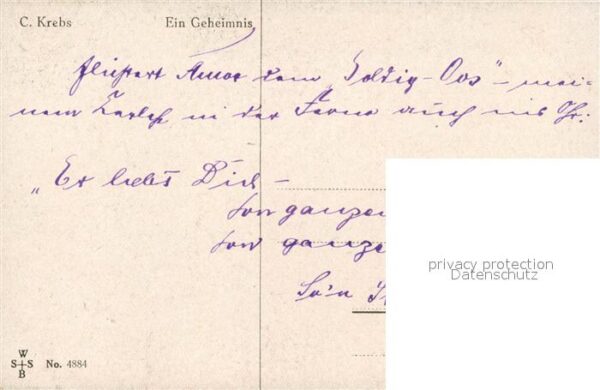 C. Krebs Ein Geheimnis
flüstert Amor dem "Goldig-Oos" – mei-
nem in der Ferne auch ins Ohr:
"Er liebt Dich –
von ganzen
von ganze
privacy protection
Datenschutz
W
S S
B
No. 4884